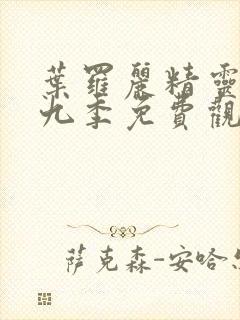 葉羅麗精靈
九季免費觀
萨克森-安哈